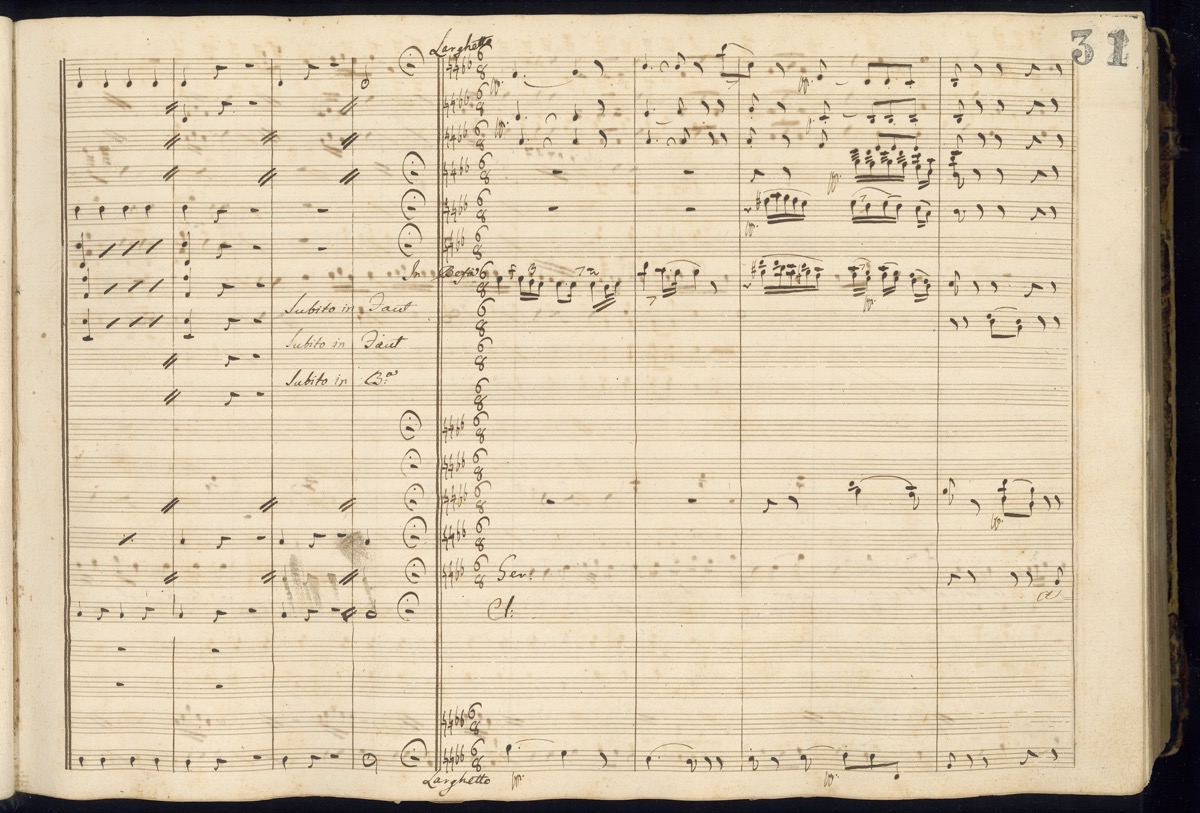 31
Larghetto
In Befa
Subito in Faut
Subito in Faut
Subito in B.a
Ger:
Cl:
Larghetto